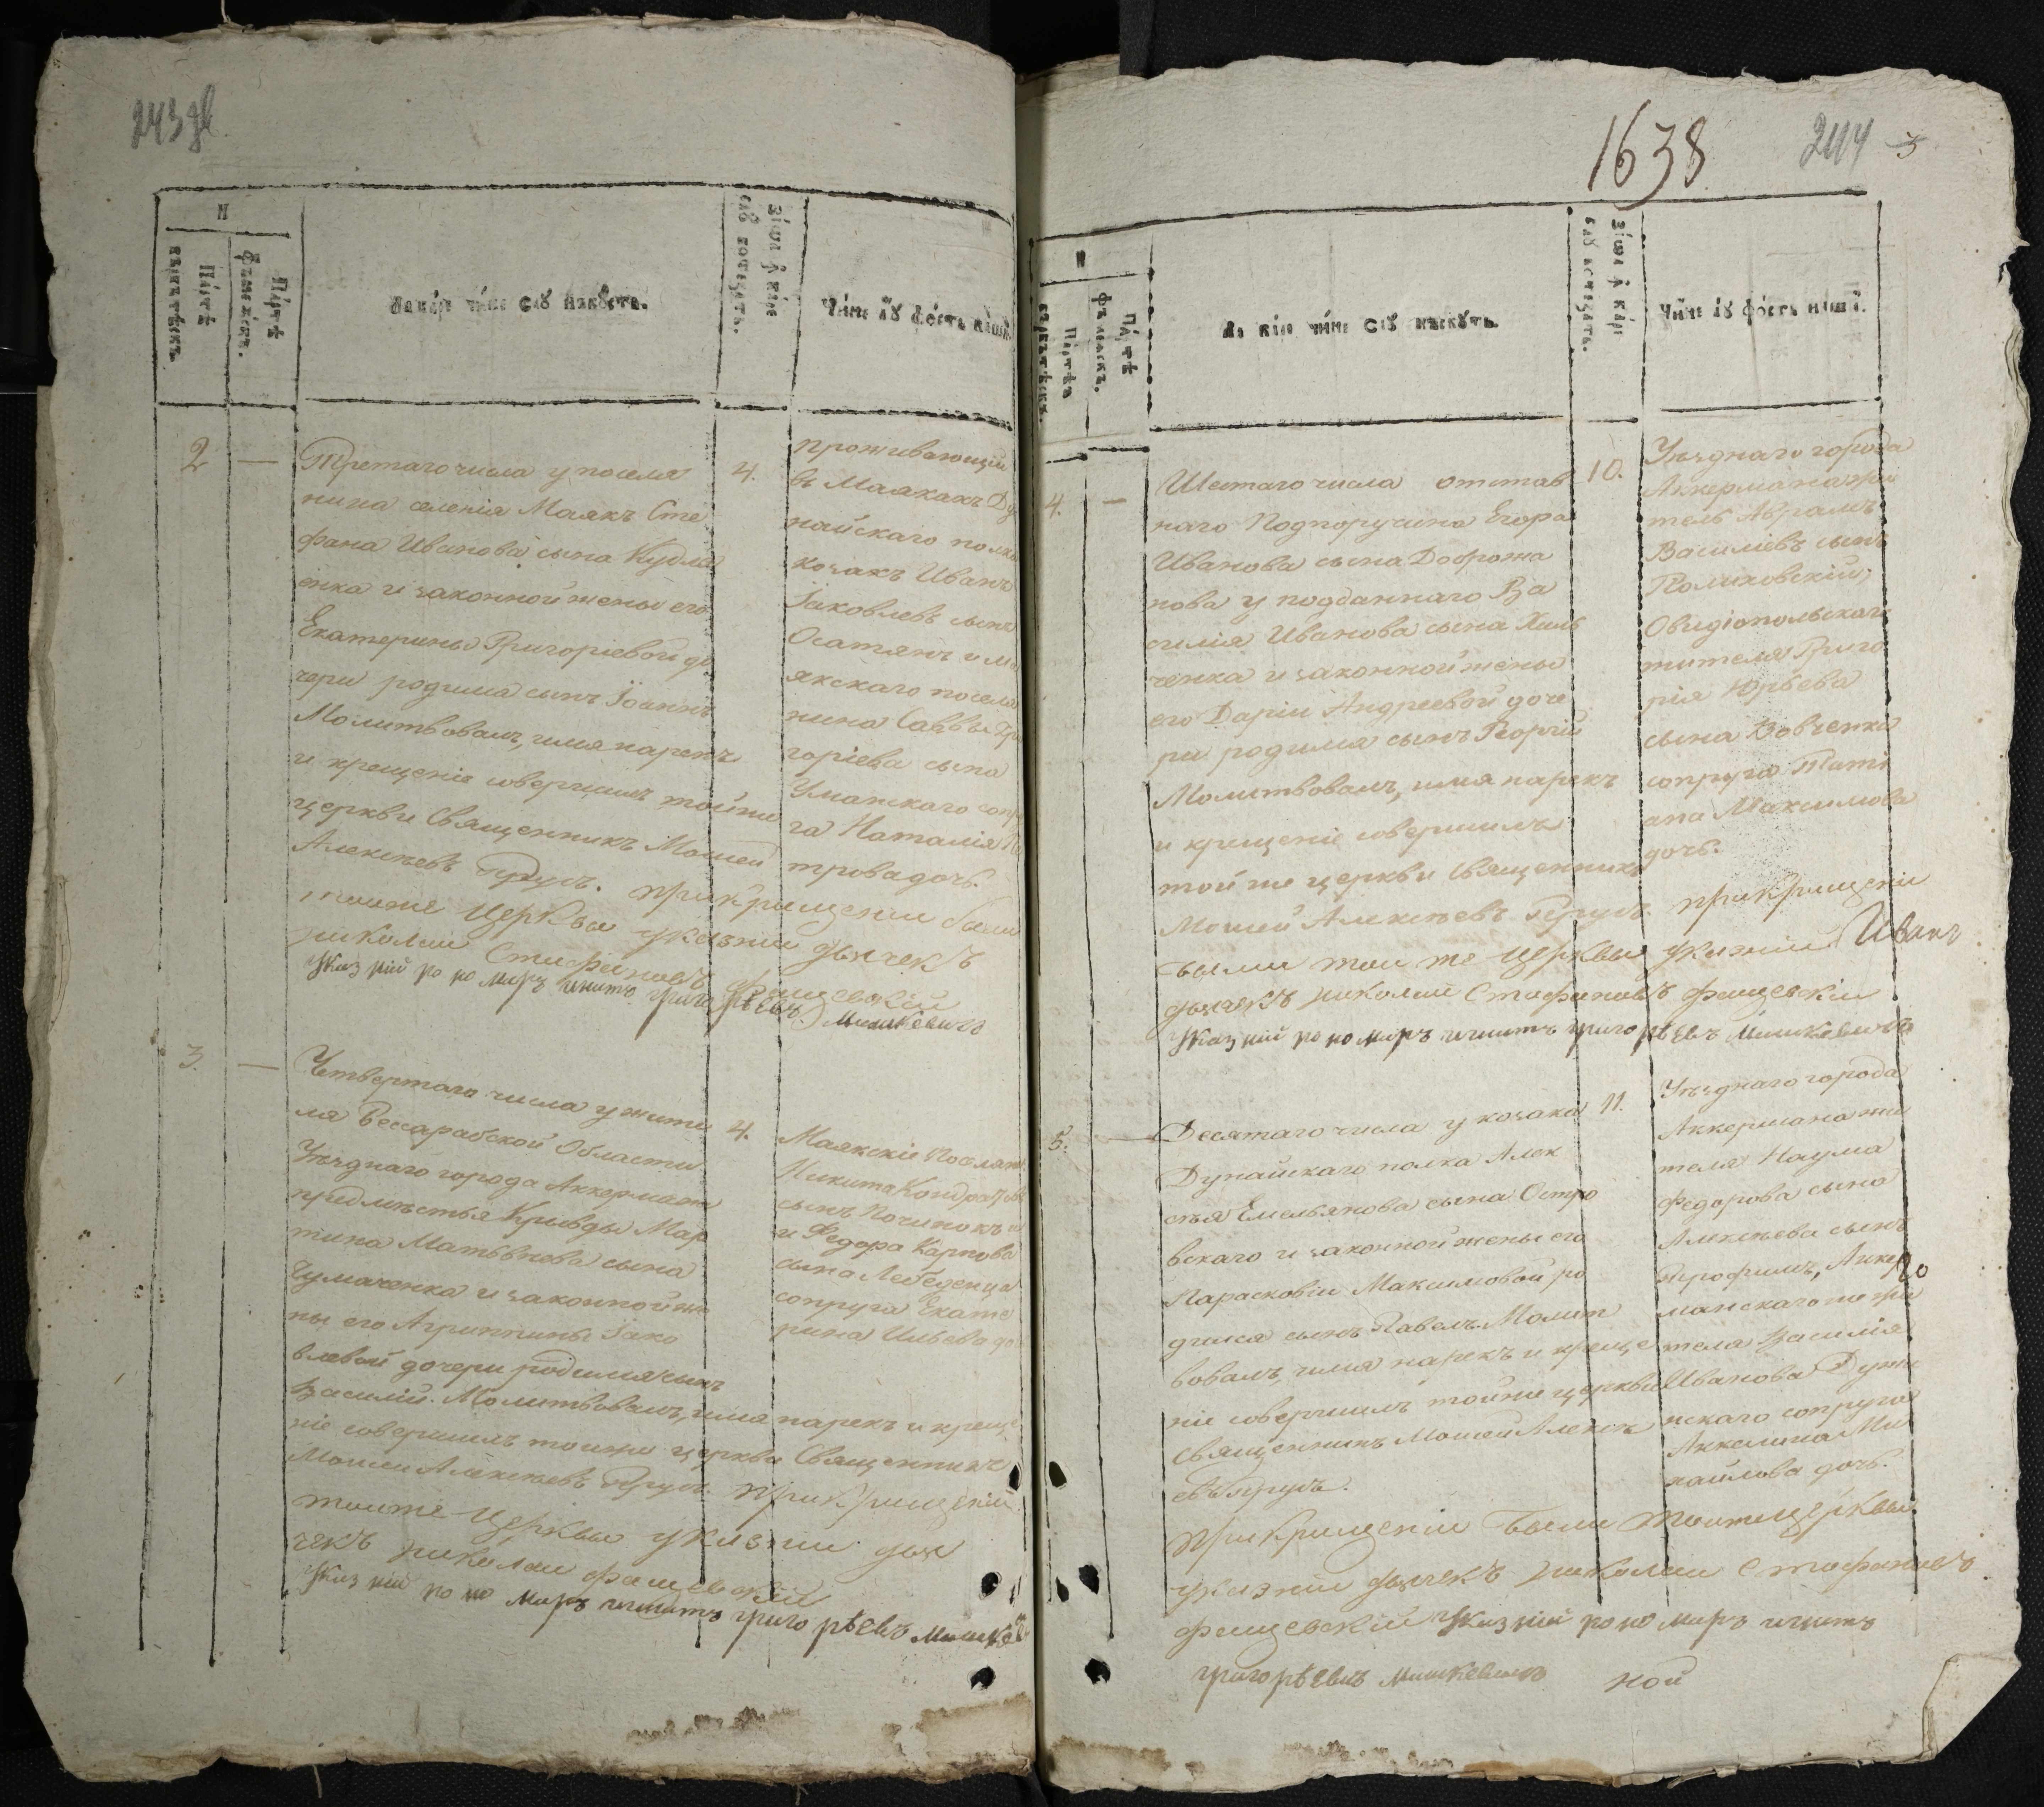 243 об
Н
Пáртѣ бъ҆рбътѣскъ.
Пáртѣ фъмеѧскъ.
Ла кáре чи́не с'аꙋ нъскꙋ́тъ.
Зíꙋа ꙟ кáре с'аꙋ ботеза́тъ.
Чи́не аꙋ фо́стъ на́шїй.
2
—
Третаго числа у поселя
нина селенія Маякъ Сте
фана Иванова сына Кудла
енка и законной жены его
Екатерины Григоріевой до
чери родился сынъ Іоаннъ
Молитвовалъ, имя нарекъ
и крещеніе совершилъ той же
церкви Священникъ Мойсей
Алексѣевъ
При крещеніи были
тоиже церкви указній дьячекъ
николаи Стефановъ Фащевскій
Указній пономаръ игнатъ григорѣевъ Мишкевичъ
4.
проживающій
въ Маякахъ Ду
найскаго полка
козакъ Иванъ
Іаковлевъ сынъ
Осатянъ и ма
якскаго поселя
нина Саввы Гри
горіева сына
Уманскаго супру
га Наталія Пе
трова дочь.
3.
—
Четвертаго числа у жите
ля Бессарабской Области
Уѣзднаго города Аккермана
предмѣстья Кривды Мар
тина Матвѣева сына
Чумаченка и законной же
ны его Агриппины Іако
влевой дочери родился сынъ
Василій. Молитвовалъ, имя нарекъ и креще
ніе совершилъ тойже церкви Священникъ
Мойсей Алексѣевъ При крещеніи
тоиже церквы указни дья
чекъ николаи фащевскій
Указній пономаръ игнатъ григорѣевъ Мишкев
4.
Маякскіе Поселяне
Никита Кондратовъ
сынъ Починокъ
и Федора Карпова
сына Лебеденца
сопруга Екате
рина Ильева до
1638
244
3
Н
Пáртѣ бъ҆рбътѣскъ.
Пáртѣ фъмеѧскъ.
Ла кáре чи́не с'аꙋ нъскꙋ́тъ.
Зíꙋа ꙟ кáре с'аꙋ ботеза́тъ.
Чи́не аꙋ фо́стъ на́шїй.
4.
—
Шестаго числа отстав
наго Подпоручика Егора
Иванова сына Доброжа
нова у подданнаго Ва
силія Иванова сына Хиль
ченка и законной жены
его Даріи Андреевой доче
ри родился сынъ Георгій
Молитвовалъ, имя нарекъ
и крещеніе совершилъ
той же церкви Священникъ
Мойсей Алексѣевъ При крещеніи
были тои же церквы указній Иванъ
дьячекъ николаи Стефановъ фащевскіи
Указній пономаръ игнатъ григорѣевъ Мишкевичъ
10.
Уѣзднаго города
Аккермана жи
тель Аврамъ
Василіевъ сынъ
Полиховскій;
Овидіопольскаго
жителя Григо
рія Юрьева
сына Вовченка
сопруга Таті
ана Максимова
дочь.
5.
—
Десятаго числа у козака
Дунайскаго полка Алек
сѣя Емельянова сына Остро
вскаго и законной жены его
Парасковіи Максимовой ро
дился сынъ Павелъ. Молит
вовалъ, имя нарекъ и креще
ніе совершилъ тойже церкви
Священникъ Мойсей Алексѣ
евъ
При крещеніи были тоиже церквы
указніи дьячекъ николаи Стефановъ
фащевскіи Указній пономаръ игнатъ
григорѣевъ Мишкевичъ
ной
11.
Уѣзднаго города
Аккермана жи
теля Наума
Федорова сына
Алексѣева сынъ
Трофимъ, Аккер
манскаго же жи
теля Василія
Иванова
нскаго сопруга
Анкелина Ми
хайлова дочь.